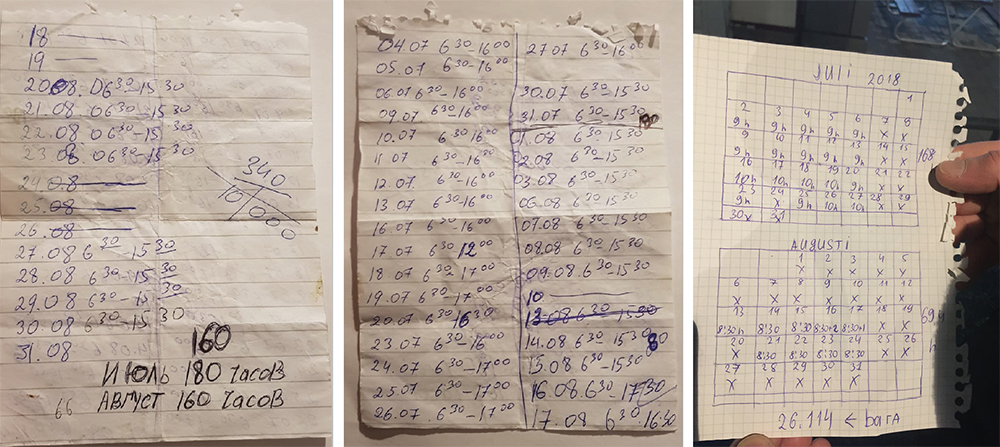 18 —
19 —
20.08. 06³⁰-15 30
21.08. 06³⁰-15 30
22.08 06³⁰-15 30
23 08 06³⁰-15 30
24.08
25.08
26.08
27.08 6³⁰-15 30
28.08 6³⁰-15 30
29.08 6³⁰-15 30
30 08 6³⁰-15 30
31.08
340
10/000
160
Июль 180 часов
Август 160 часов
66
04.07 6³⁰-16⁰⁰
05.07 6³⁰-16⁰⁰
06.07 6³⁰-16⁰⁰
09.07 6³⁰-16⁰⁰
10.07 6³⁰-16⁰⁰
11 07 6³⁰-16³⁰
12.07 6³⁰-16⁰⁰
13 07 6³⁰-16⁰⁰
16 07 6³⁰-16⁰⁰
17 07 6³⁰ 12⁰⁰
18 07 6³⁰-17⁰⁰
19.07 6³⁰-17⁰⁰
20.07 6³⁰ 16³⁰
23.07 6³⁰-16⁰⁰
24.07 6³⁰-17⁰⁰
25.07 6³⁰-17⁰⁰
26.07 6³⁰-17⁰⁰
27.07 6³⁰-16⁰⁰
30.07 6³⁰-15³⁰
31.07 6³⁰-15³⁰
1.08 6³⁰-15³⁰
02.08 6³⁰-15³⁰
03.08 6³⁰-15³⁰
06.08 6³⁰-15³⁰
07.08 6³⁰-15³⁰
08.08 6³⁰-15³⁰
09.08 6³⁰-15³⁰
10 —
13 08 6³⁰-15 30
14.08 6³⁰ 15³⁰
80
15.08 6³⁰-15³⁰
16.08.6³⁰-17/30
17.08 6³⁰-16:30
JULI 2018
1
2 3 4 5 6 7 8
9h 9h 9h 9h 9h x x
9 10 11 12 13 14 15
9h 9h 9h 9h 9h x x
16 17 18 19 20 21 22
10h 10h 10h 10h 9h x x
23 24 25 26 27 28 29
9h x 9h 10h 10h x x
30x 31
168
AUGUSTI
1 2 3 4 5
x x x x x
6 7 8 9 10 11 12
x x x x x x x
13 14 15 16 17 18 19
8:30h 8:30 8:30 8:30+2 8:30+1 x x
20 21 22 23 24 25 26
x 8:30 8:30 8:30 8:30 x x
27 28 29 30 31
x x x x x
h
26.114 ← ВАГА